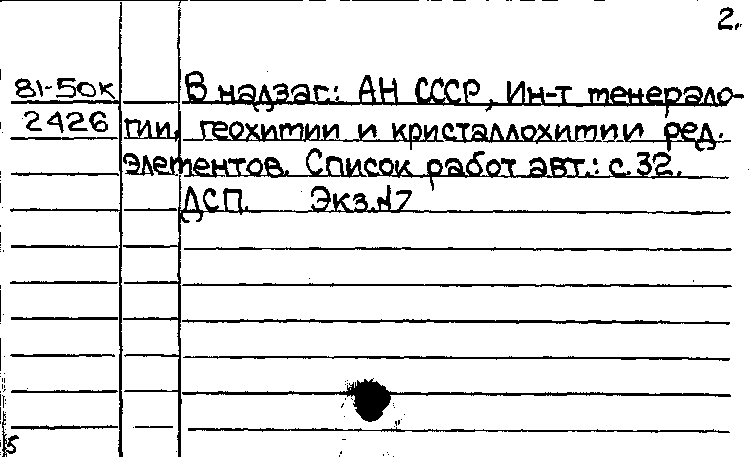 2.
81-50к В надзаг.: АН СССР, Ин-т минерало-
2426 гии, геохимии и кристаллохимии ред.
элементов. Список работ авт.: с. 32.
ДСП. Экз. №7
5